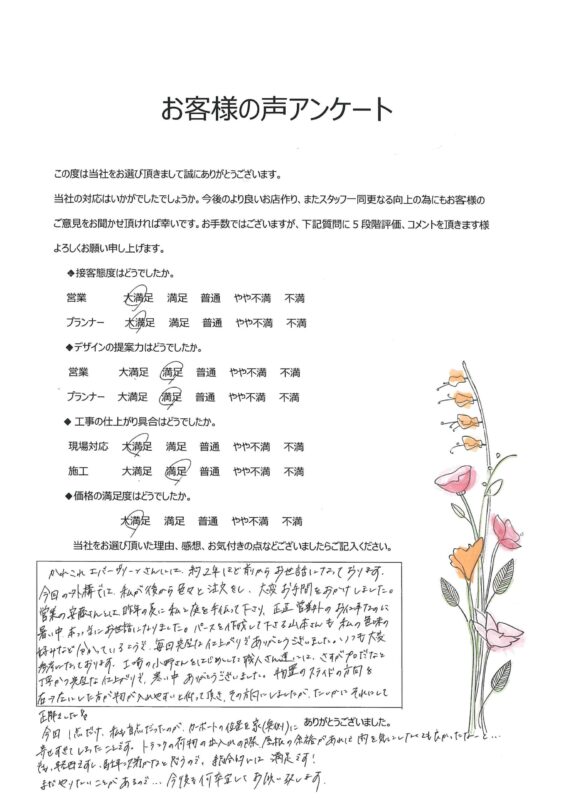 お客様の声アンケート
この度は当社をお選び頂きまして誠にありがとうございます。
当社の対応はいかがでしたでしょうか。今後のより良いお店作り、またスタッフ一同更なる向上の為にもお客様の
ご意見をお聞かせ頂ければ幸いです。お手数ではございますが、下記質問に5段階評価、コメントを頂きます様
よろしくお願い申し上げます。
◆接客態度はどうでしたか。
営業 大満足 満足 普通 やや不満 不満
プランナー 大満足 満足 普通 やや不満 不満
◆デザインの提案力はどうでしたか。
営業 大満足 満足 普通 やや不満 不満
プランナー 大満足 満足 普通 やや不満 不満
◆ 工事の仕上がり具合はどうでしたか。
現場対応 大満足 満足 普通 やや不満 不満
施工 大満足 満足 普通 やや不満 不満
◆価格の満足度はどうでしたか。
大満足 満足 普通 やや不満 不満
当社をお選び頂いた理由、感想、お気付きの点などございましたらご記入ください。
かれこれ エバーグリーンさんには、約2年ほど前からお世話になっております。
今回の外構では、私が後から色々と注文をし、大変お手間をおかけしました。
営業の安藤さんには、昨年の夏に私と庭を手伝って下さり、正直 営業外のお仕事なのに
暑い中 本当にお世話になりました。パースを作成して下さる山本さんも 私の意味の
好みなど分かっているようで、毎回完璧な仕上がりでありがとうございました。いつも大変
参考になっております。工事の小野さんをはじめとした職人さん達には、さすがプロだなと
丁寧かつ完璧な仕上りで、暑い中 ありがとうございました。物置のスライドの方向を
右→左にした方が物が入れやすいと言って頂き、その方向にしましたが、たしかに それにして
正解でした
ありがとうございました。
今回 1点だけ、私も盲点だったのが、カーポートの位置を家(東側)に
寄せすぎてしまったことです。トラックの荷物の出入れの際、屋根の余裕があれば 雨を気にしなくてもよかったな〜と…
でも、結論的には 満足です!
まだやりたいことがあるので… 今後も何卒宜しくお願い致します。